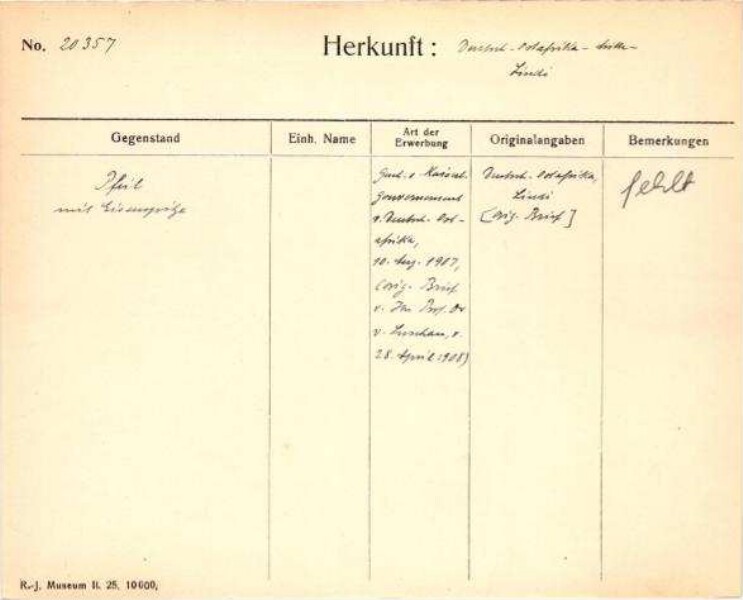 No. 20357
Herkunft: Deutsch-Ostafrika-
Lindi
Gegenstand
Einh. Name
Art der Erwerbung
Originalangaben
Bemerkungen
Pfeil
mit Eisenspitze
Gesch. v. Kaiserl.
Gouvernement
v. Deutsch-Ost-
afrika,
10. Aug. 1907,
(orig. Brief
v. Hrn Prof. Dr
v. Luschan, v.
28. April 1908)
Deutsch-Ostafrika,
Lindi
[orig. Brief]
fehlt
R.-J. Museum II. 25. 10000,